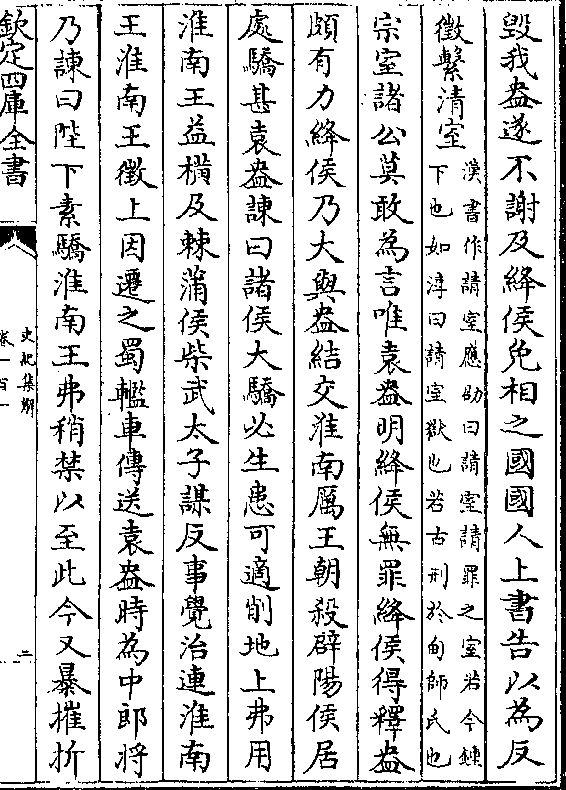 毀我盎遂不謝及絳侯免相之國國人上書告以為反
徵繫清室
漢書作請室應劭曰請室請罪之室若今鍾
下也如淳曰請室獄也若古刑於甸師氏也
宗室諸公莫敢為言唯袁盎明絳侯無罪絳侯得釋盎
頗有力絳侯乃大與盎結交淮南厲王朝殺辟陽侯居
處驕甚袁盎諫曰諸侯大驕必生患可適削地上弗用
淮南王益橫及棘蒲侯柴武太子謀反事覺治連淮南
王淮南王徵上因遷之蜀轞車傳送袁盎時為中郎將
乃諫曰陛下素驕淮南王弗稍禁以至此今又暴摧折
欽定四庫全書
史記集解
卷一百一
二